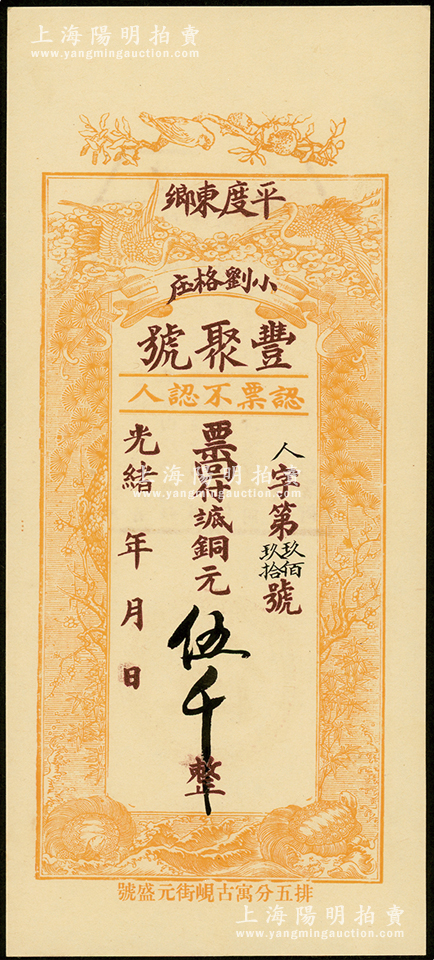 上海陽明拍賣
www.yangmingauction.com
平度東鄉
小劉格庄
豐聚號
認票不認人
人字第玖佰玖拾號
票存誠銅元伍千整
光緒 年 月 日
上海陽明拍賣
www.yangmingauction.com
排五分寓古峴街元盛號
上海陽明拍賣
www.yangmingauction.com